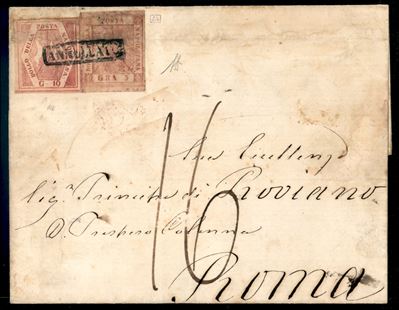 BOLLO DELLA POSTA NAPOLETANA
G. 10
POSTA
GRA 2
ANNULLATO
16
Sua Eccellenza
Sig. Principe di Roviano
D. Prospero Colonna
Roma